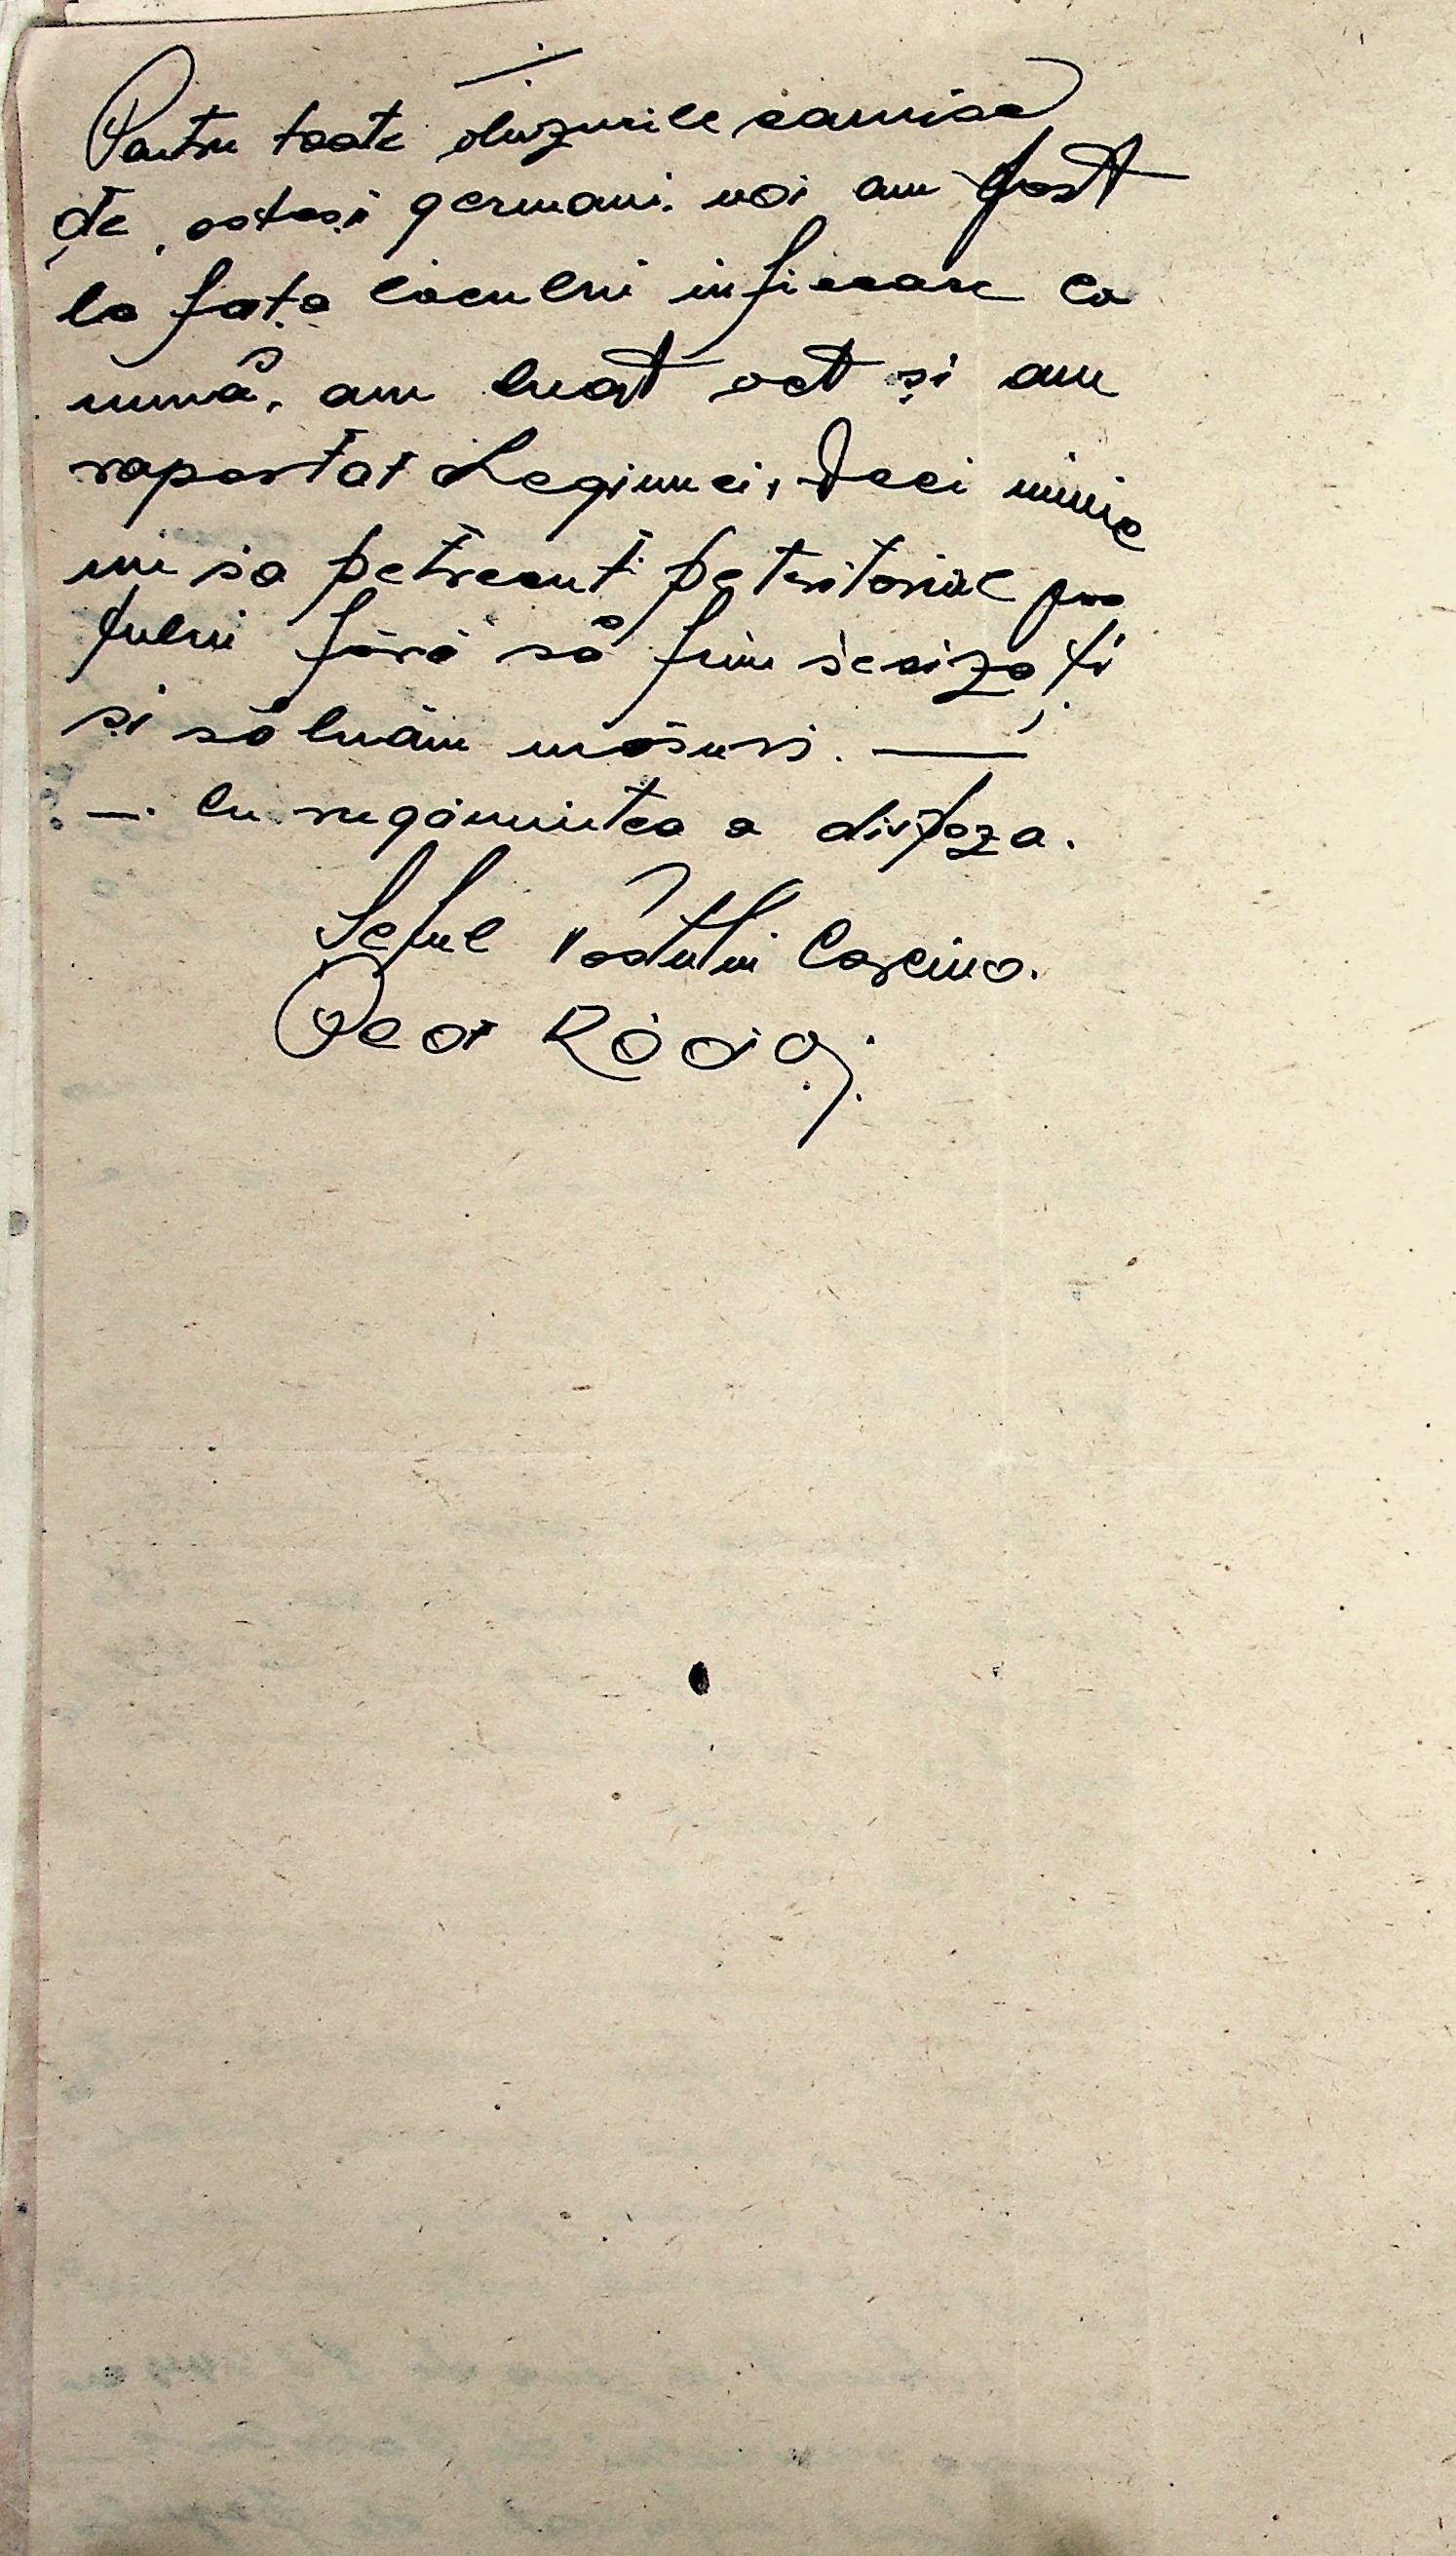 ./.
Pentru toate abuzurile comise
de ostașii germani. noi am fost
la fața locului in fiecare co
mună, am luat act și am
raportat Legiunei, Deci nimic
nu sa petrecut pe teritoriul pos
tului fără să fim sesizați
și să luăm măsuri. —
—. Cu rugămintea a dispoza.
Șeful Postului Cașcina.